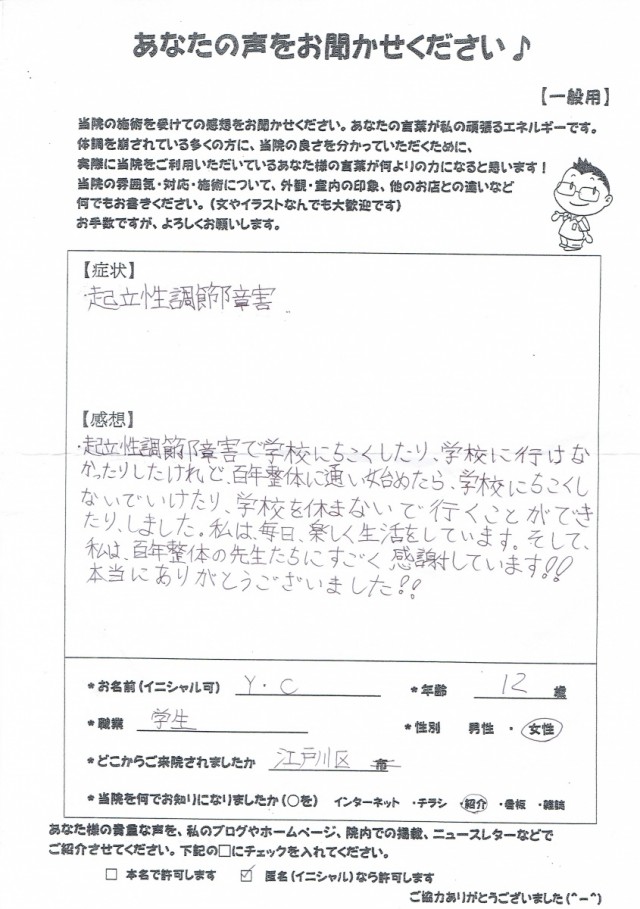 あなたの声をお聞かせください♪
【一般用】
当院の施術を受けての感想をお聞かせください。あなたの言葉が私の頑張るエネルギーです。
体調を崩されている多くの方に、当院の良さを分かっていただくために、
実際に当院をご利用いただいているあなた様の言葉が何よりの力になると思います！
当院の雰囲気・対応・施術について、外観・室内の印象、他のお店との違いなど
何でもお書きください。（文やイラストなんでも大歓迎です）
お手数ですが、よろしくお願いします。
【症状】
・起立性調節障害
【感想】
・起立性調節障害で学校にちこくしたり、学校に行けな
かったりしたけれど、百年整体に通い始めたら、学校にちこくし
ないでいけたり、学校を休まないで行くことができ
たり、しました。私は、毎日、楽しく生活をしています。そして、
私は、百年整体の先生たちにすごく感謝しています!!
本当にありがとうございました!!
＊お名前（イニシャル可） Y・C ＊年齢 12 歳
＊職業 学生 ＊性別 男性 ・ 女性
＊どこからご来院されましたか 江戸川区 市
＊当院を何でお知りになりましたか（○を） インターネット ・チラシ ・紹介 ・看板 ・雑誌
あなた様の貴重な声を、私のブログやホームページ、院内での掲載、ニュースレターなどで
ご紹介させてください。下記の□にチェックを入れてください。
□ 本名で許可します ☑ 匿名（イニシャル）なら許可します
ご協力ありがとうございました（^－^）